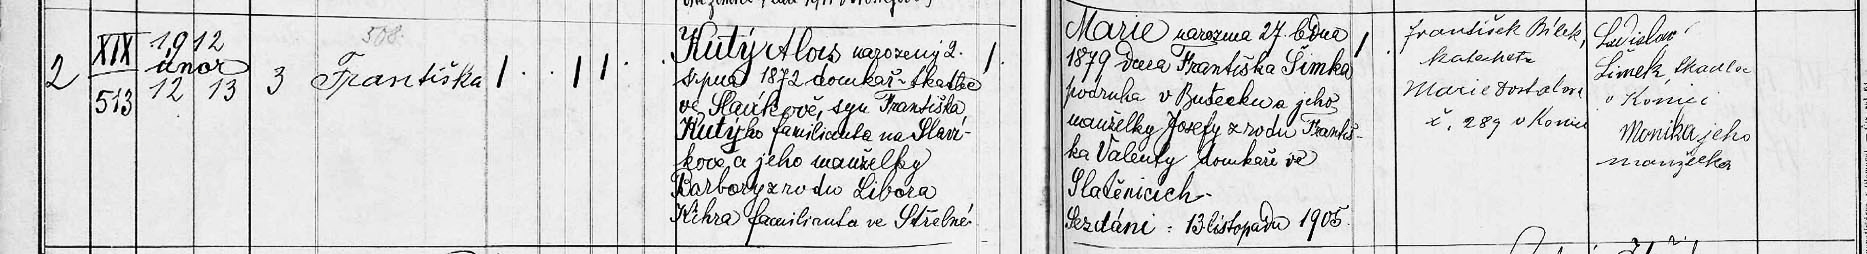 2
XIX
513
1912
únor
12 13
3
508.
Františka
1 . . 1 1 .
Kutý Alois narozený 2.
srpna 1872 domkař
ve Slavíkově, syn Františka
Kutýho familianta na Slaví-
kově, a jeho manželky
Barbory z rodu Libora
familianta ve Střelné
1.
Marie narozená 27. ledna
1879 dcera Františka Šimka
podruha v Budecku a jeho
manželky Josefy z rodu Františ-
ka Valenty domkaře ve
Slatěnicích.
Sezdáni: 13 listopadu 1905.
1.
František Bílek,
katecheta
Marie Dostalova
č. 289 v Konici
Ladislav
Šimek
v Konici
Monika jeho
manželka